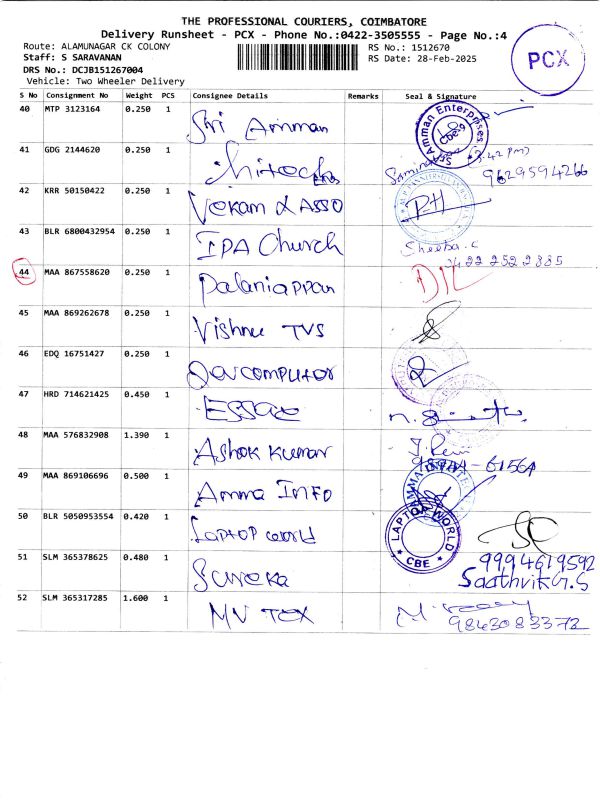 THE PROFESSIONAL COURIERS, COIMBATORE
Delivery Runsheet - PCX - Phone No.:0422-3505555 - Page No.:4
Route: ALAMUNAGAR CK COLONY
RS No.: 1512670
Staff: S SARAVANAN
RS Date: 28-Feb-2025
DRS No.: DCJB151267004
Vehicle: Two Wheeler Delivery
PCX
S No Consignment No Weight PCS Consignee Details Remarks Seal & Signature
40 MTP 3123164 0.250 1 Sri Amman
41 GDG 2144620 0.250 1 (3.42 PM)
9629594266
42 KRR 50150422 0.250 1 Vekam & ASSO
43 BLR 6800432954 0.250 1 IPA Church Sheeba.C
422 252 2885
44 MAA 867558620 0.250 1 Palaniappan
45 MAA 869262678 0.250 1 Vishnu TVS
46 EDQ 16751427 0.250 1 computer
47 HRD 714621425 0.450 1 ESSAE
48 MAA 576832908 1.390 1 Ashok Kumar
49 MAA 869106696 0.500 1 Amma INFO
50 BLR 5050953554 0.420 1 Laptop world LAPTOP WORLD CBE
51 SLM 365378625 0.480 1 Sureka 9994619592
Saathvik G.S
52 SLM 365317285 1.600 1 MN TEX
9843083372